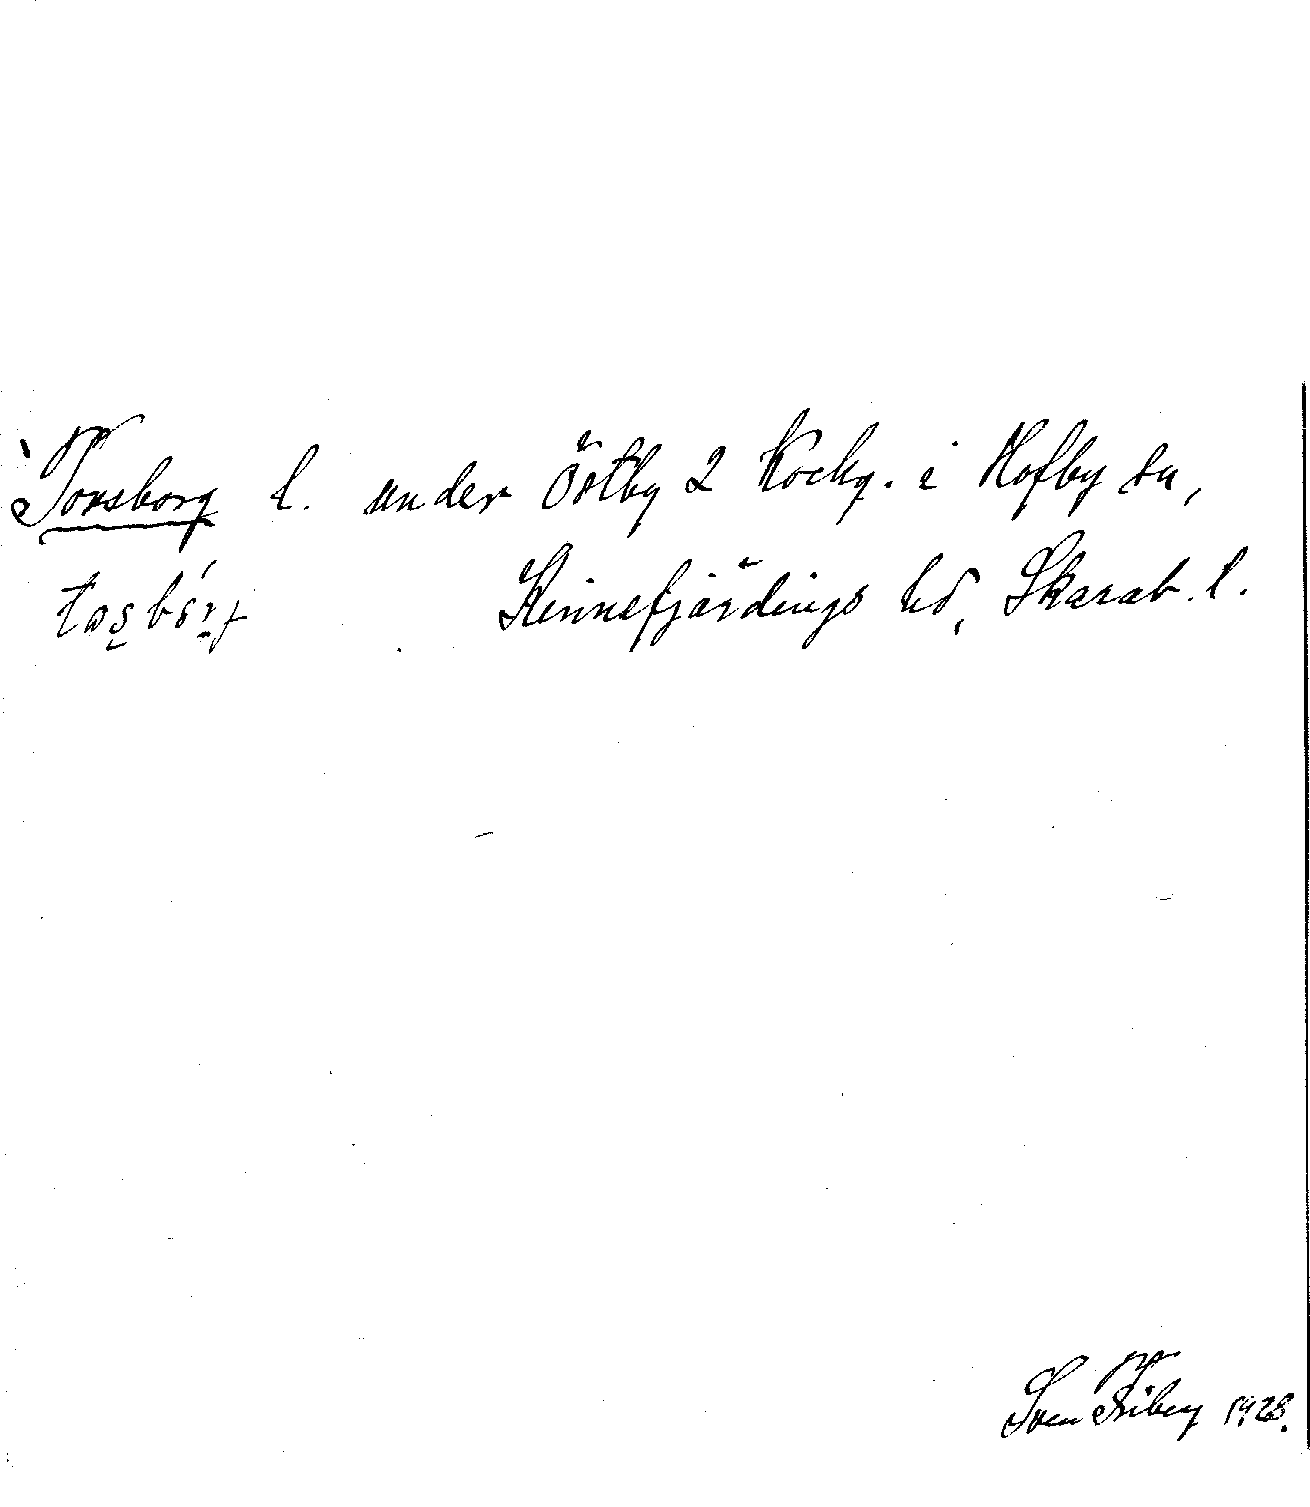 Torsborg l. under Östby 2 Kockg. i Hofby sn,
Kinnefjärdings hd, Skarab. l.
Sven Friberg 1928.